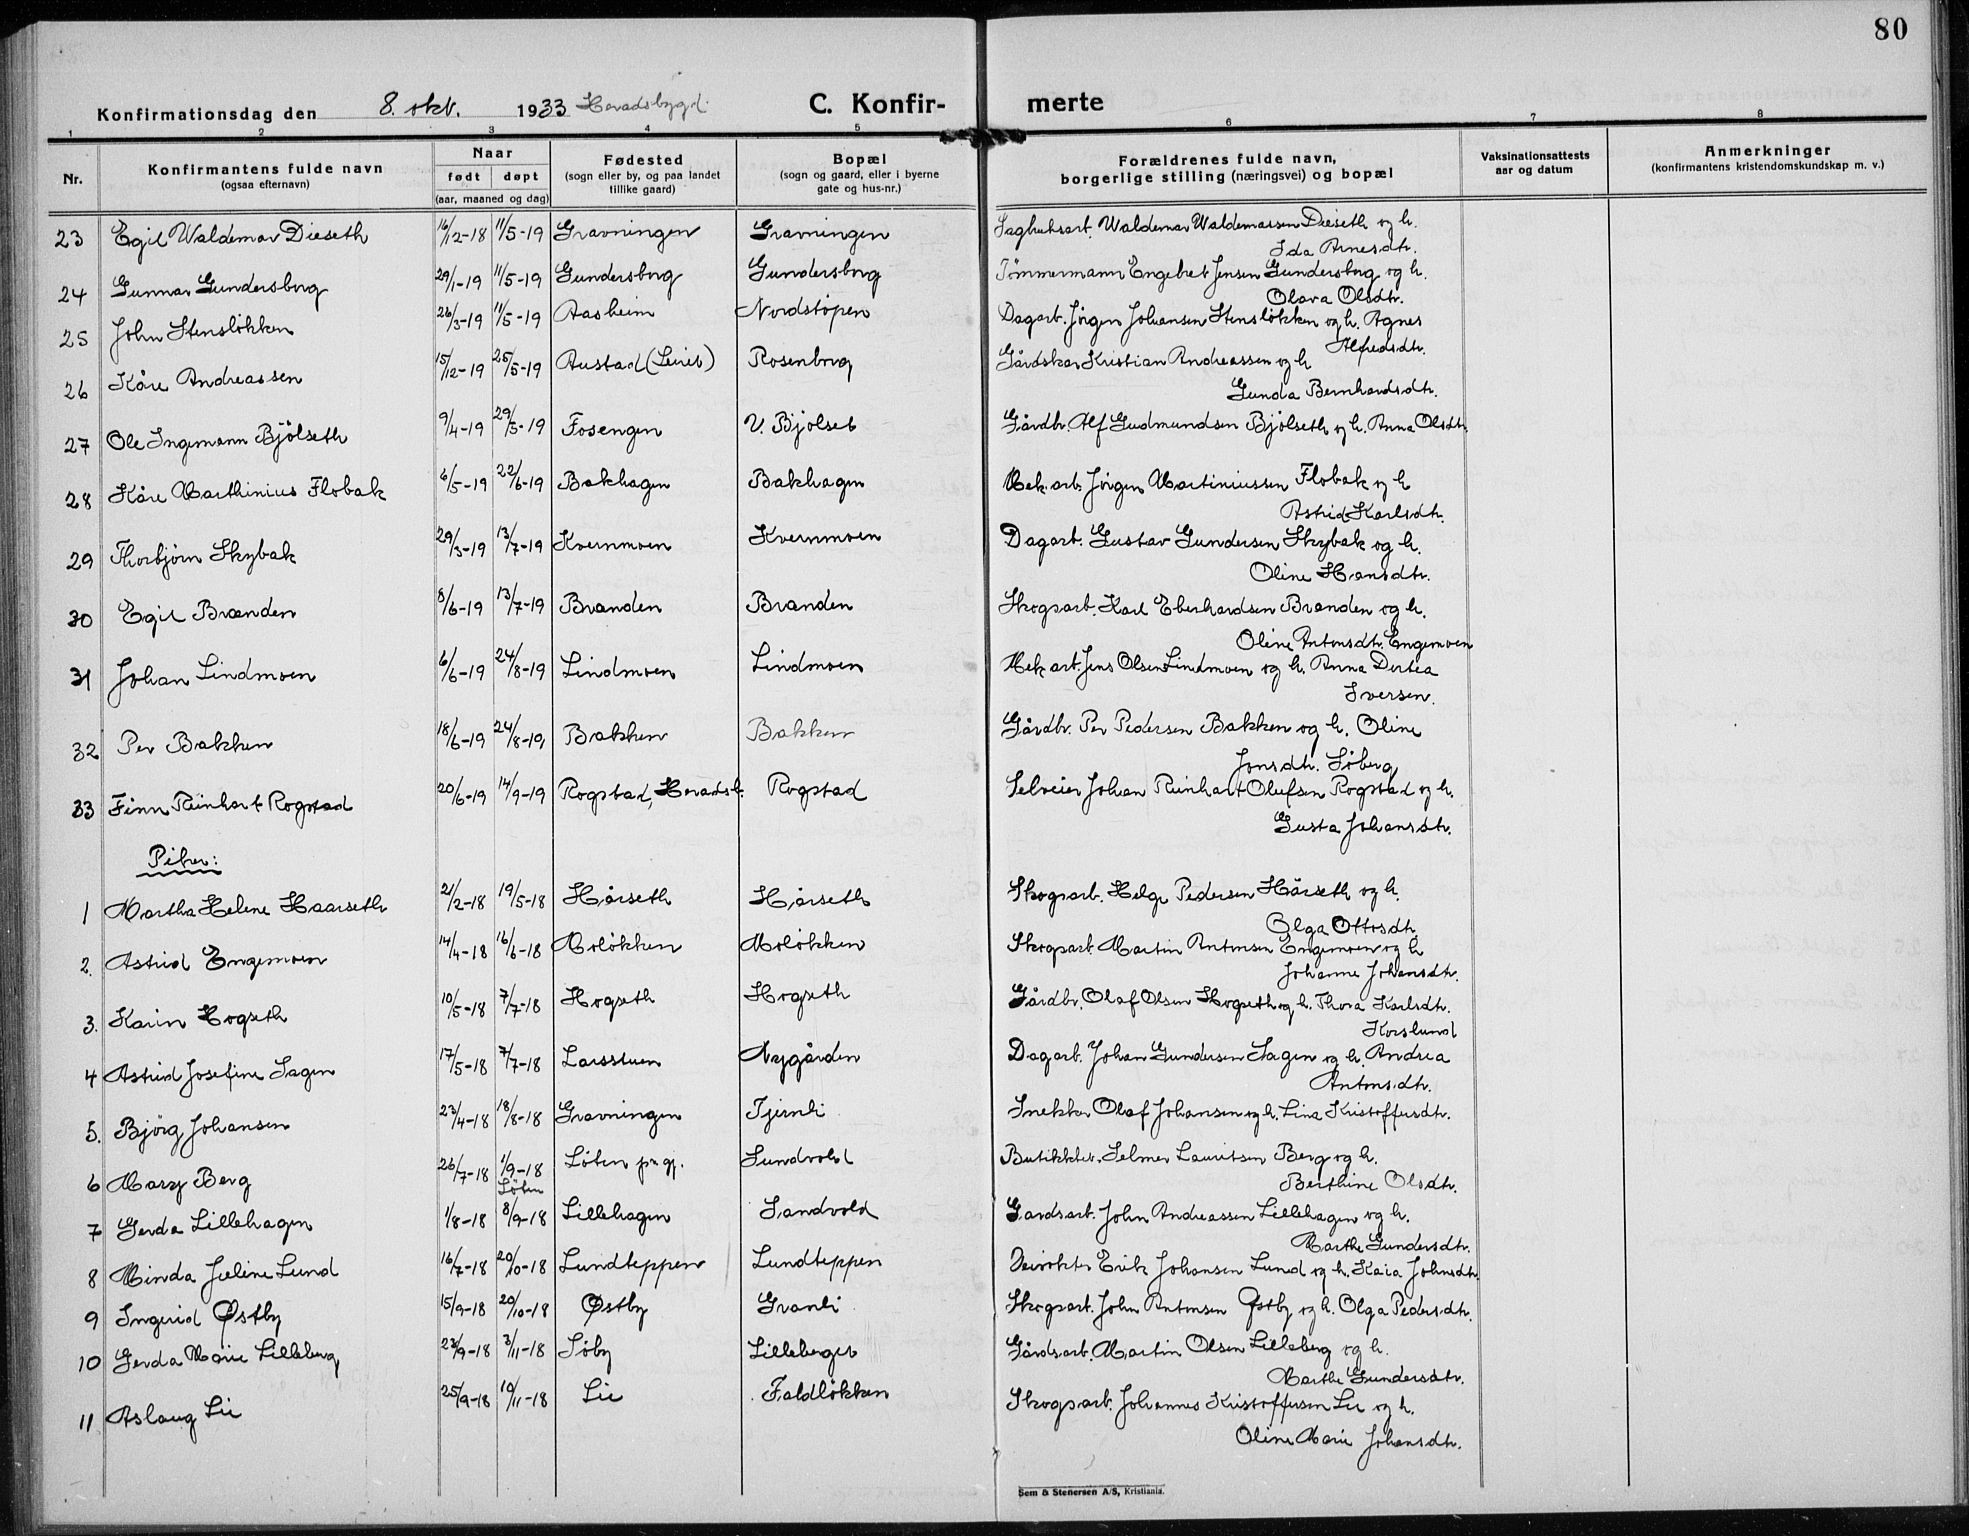 80
Konfirmationsdag den 8. okt. 1933 Heradsbygd. C. Konfir- merte
1 2 3 4 5 6 7 8
Nr. Konfirmantens fulde navn (ogsaa efternavn) Naar født døpt (aar, maaned og dag) Fødested (sogn eller by, og paa landet tillike gaard) Bopæl (sogn og gaard, eller i byerne gate og hus-nr.) Forældrenes fulde navn, borgerlige stilling (næringsvei) og bopæl Vaksinationsattests aar og datum Anmerkninger (konfirmantens kristendomskundskap m. v.)
23 Egil Waldemar Dieseth 16/12-18 11/5-19 Gravningen Gravningen Sagbruksarb. Waldemar Waldemarsen Dieseth og h.
Ida Arnesdtr.
24 Gunnar Gundersborg 29/1-19 11/5-19 Gundersborg Gundersborg Tömmermann Engebret Jensen Gundersborg og h.
Olava Olsdtr.
25 John Stenslökken 26/3-19 11/5-19 Aasheim Nordstöpen Dagarb. Jörgen Johansen Stenslökken og h. Agnes
Alfredsdtr.
26 Kåre Andreassen 15/12-19 25/5-19 Austad (Leiret) Rosenborg Gårdskar Kristian Andreassen og h
Gunda Bernhardsdtr.
27 Ole Ingemann Bjölseth 9/4-19 29/5-19 Fosengen V. Bjölset Gårdbr. Alf Gudmundsen Bjölseth og h. Anna Olsdtr.
28 Kåre Marthinius Flobak 6/5-19 22/6-19 Bakhagen Bakhagen Mek. arb. Jörgen Martiniussen Flobak og h
Astrid Karlsdtr.
29 Thorbjörn Skybak 29/3-19 13/7-19 Kvernmoen Kvernmoen Dagarb. Gustav Gundersen Skybak og h.
Oline Hansdtr.
30 Egil Brænden 8/6-19 13/7-19 Brænden Brænden Skogsarb. Karl Eberhardsen Brænden og h.
Oline Antonsdtr. Engemoen
31 Johan Lindmoen 6/6-19 24/8-19 Lindmoen Lindmoen Mek arb. Jens Olsen Lindmoen og h. Anna Dortea
Iversen.
32 Per Bakken 18/6-19 24/8-19 Bakken Bakken Gårdbr. Per Pedersen Bakken og h. Oline
Jonsdtr. Söberg
33 Finn Reinhart Rogstad 20/6-19 14/9-19 Rogstad, Heradsb. Rogstad Selveier Johan Reinhart Olufsen Rogstad og h.
Gusta Johansdtr.
Piker:
1 Martha Helene Haarseth 21/2-18 19/5-18 Hårseth Hårseth Skogsarb. Helge Pedersen Hårseth og h.
Olga Ottosdtr.
2. Astrid Engemoen 14/4-18 16/6-18 Molökken Molökken Skogsarb. Martin Antonsen Engemoen og h
Johanne Johansdtr.
3. Karin Hogseth 10/5-18 7/7-18 Hogseth Hogseth Gårdbr. Olaf Olsen Hogseth og h. Thora Karlsdtr.
Korslund
4 Astrid Josefine Sagen 17/5-18 7/7-18 Larsstuen Nygården Dagarb. Johan Gundersen Sagen og h. Andrea
Antonsdtr.
5. Björg Johansen 23/4-18 18/8-18 Gravningen Tjernli Snekker Olaf Johansen og h. Lina Kristoffersdtr.
6 Mary Berg 26/7-18 1/9-18 Löten pr.gj. Sundvold Butikkbet. Selmer Lauritsen Berg og h.
Löten Berthine Olsdtr.
7 Gerda Lillehagen 1/8-18 8/9-18 Lillehagen Sandvold Gårdsarb. John Andreassen Lillehagen og h.
Marthe Gundersdtr.
8 Minda Jeline Lund 16/7-18 20/10-18 Lundteppen Lundteppen Veivokter Erik Johansen Lund og h. Kaia Johnsdtr.
9 Ingrid Østby 15/9-18 20/10-18 Østby Granli Skogsarb. John Antonsen Østby og h. Olga Pedersdtr.
10 Gerda Marie Lilleberg 23/9-18 3/11-18 Söby Lilleberget Gårdsarb. Martin Olsen Lilleberg og h.
Marthe Gundersdtr.
11 Aslaug Lie 25/9-18 10/11-18 Lie Faldlökken Skogsarb. Johannes Kristoffersen Lie og h.
Oline Marie Johansdtr.
Sem & Stenersen A/S, Kristiania.